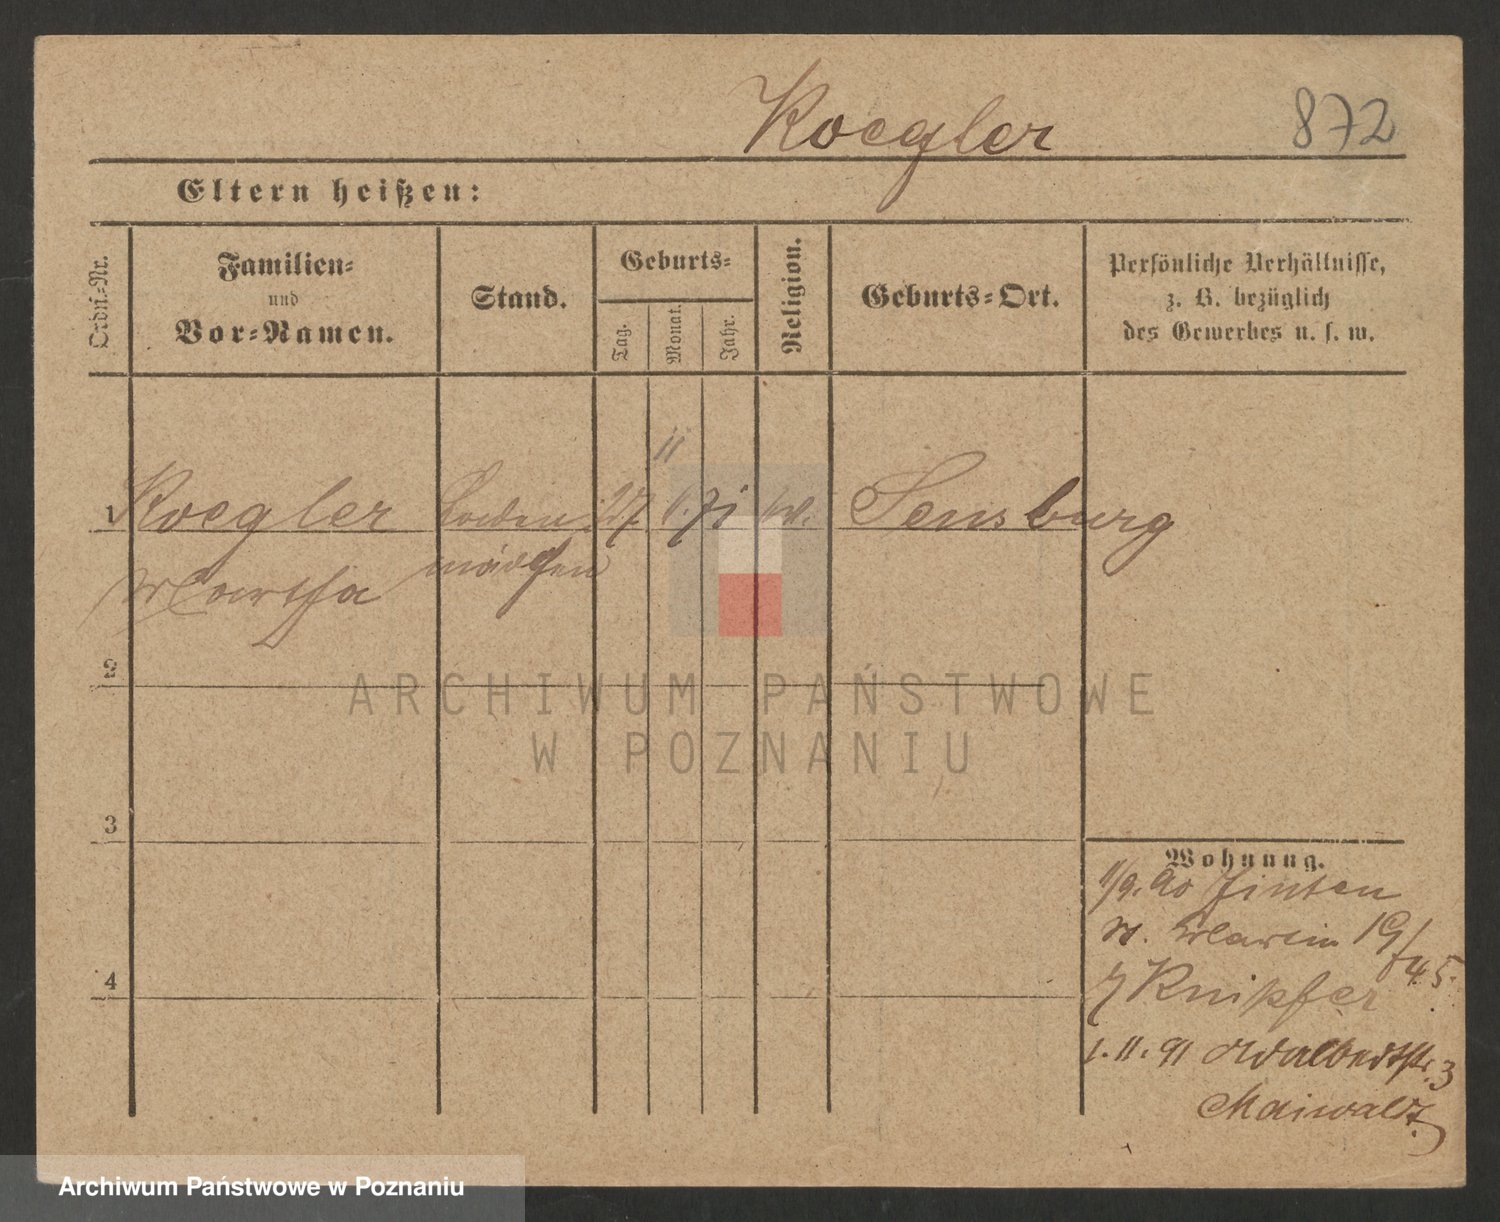 Koegler 872
Eltern heißen:
Ordn.-Nr.
Familien-
und
Vor-Namen.
Stand.
Geburts-
Tag.
Monat.
Jahr.
Religion.
Geburts-Ort.
Persönliche Verhältnisse,
z. B. bezüglich
des Gewerbes u. s. w.
11
1 Koegler Laden 27 71 Sensburg
Martha mädchen
2
ARCHIWUM PAŃSTWOWE
W POZNANIU
3
Wohnung.
1/9. 90 Zinten
St. Martin 19/
4 Knipfer
1. 11. 91 Adalbertstr. 3
Maiwald
Archiwum Państwowe w Poznaniu